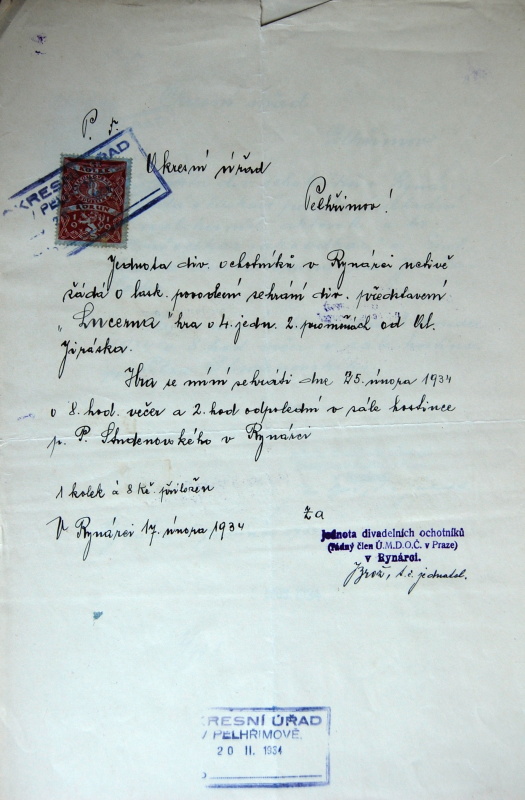 P. T.
Okresní úřad
Pelhřimov!
KRESNÍ ÚŘAD
V PELHŘIM
Jednota div. ochotníků v Rynárci uctivě
žádá o lask. povolení sehrání div. představení
„Lucerna" hra o 4. jedn. 2. proměnách od Al.
Jiráska.
Hra se míní sehráti dne 25. února 1934
o 8. hod. večer a 2. hod odpolední v sále hostince
p. P. Studenovského v Rynárci
1 kolek á 8 Kč. přiložen
V Rynárci 17. února 1934
Za
jednota divadelních ochotníků
(řádný člen Ú.M.D.O.Č. v Praze)
v Rynárci.
Brož, t.č. jednatel.
KRESNÍ ÚŘAD
V PELHŘIMOVĚ
20 II. 1934